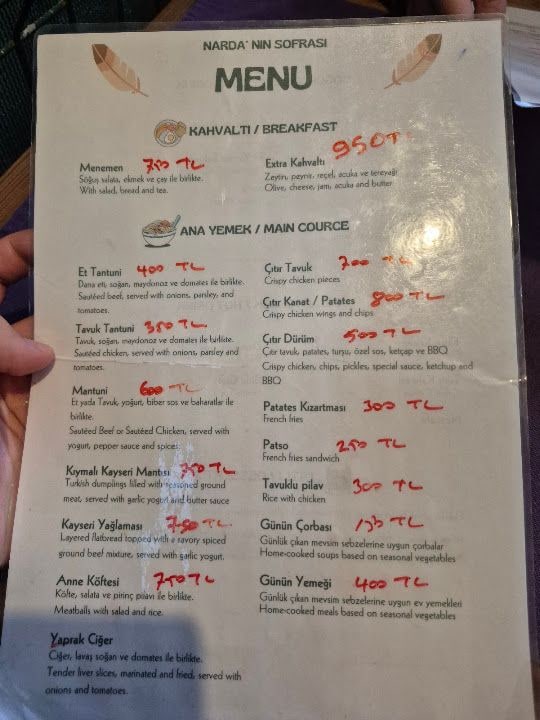 NARDA' NIN SOFRASI
MENU
KAHVALTI / BREAKFAST
Menemen 750 TL
Söğuş salata, ekmek ve çay ile birlikte.
With salad, bread and tea.
Extra Kahvaltı 950 TL
Zeytin, peynir, reçel, acuka ve tereyağı
Olive, cheese, jam, acuka and butter
ANA YEMEK / MAIN COURCE
Et Tantuni 400 TL
Dana eti, soğan, maydonoz ve domates ile birlikte.
Sautéed beef, served with onions, parsley, and
tomatoes.
Tavuk Tantuni 350 TL
Tavuk, soğan, maydonoz ve domates ile birlikte.
Sautéed chicken, served with onions, parsley and
tomatoes.
Mantuni 600 TL
Et yada Tavuk, yoğurt, biber sos ve baharatlar ile
birlikte.
Sautéed Beef or Sautéed Chicken, served with
yogurt, pepper sauce and spices.
Kıymalı Kayseri Mantısı 750 TL
Turkish dumplings filled with seasoned ground
meat, served with garlic yogurt and butter sauce
Kayseri Yağlaması 750 TL
Layered flatbread topped with a savory spiced
ground beef mixture, served with garlic yogurt.
Anne Köftesi 750 TL
Köfte, salata ve pirinç pilavı ile birlikte.
Meatballs with salad and rice.
Yaprak Ciğer
Ciğer, lavaş soğan ve domates ile birlikte.
Tender liver slices, marinated and fried, served with
onions and tomatoes.
Çıtır Tavuk 700 TL
Crispy chicken pieces
Çıtır Kanat / Patates 800 TL
Crispy chicken wings and chips
Çıtır Dürüm 500 TL
Çıtır tavuk, patates, turşu, özel sos, ketçap ve BBQ
Crispy chicken, chips, pickles, special sauce, ketchup and
BBQ
Patates Kızartması 300 TL
French fries
Patso 250 TL
French fries sandwich
Tavuklu pilav 300 TL
Rice with chicken
Günün Çorbası TL
Günlük çıkan mevsim sebzelerine uygun çorbalar
Home-cooked soups based on seasonal vegetables
Günün Yemeği 400 TL
Günlük çıkan mevsim sebzelerine uygun ev yemekleri
Home-cooked meals based on seasonal vegetables